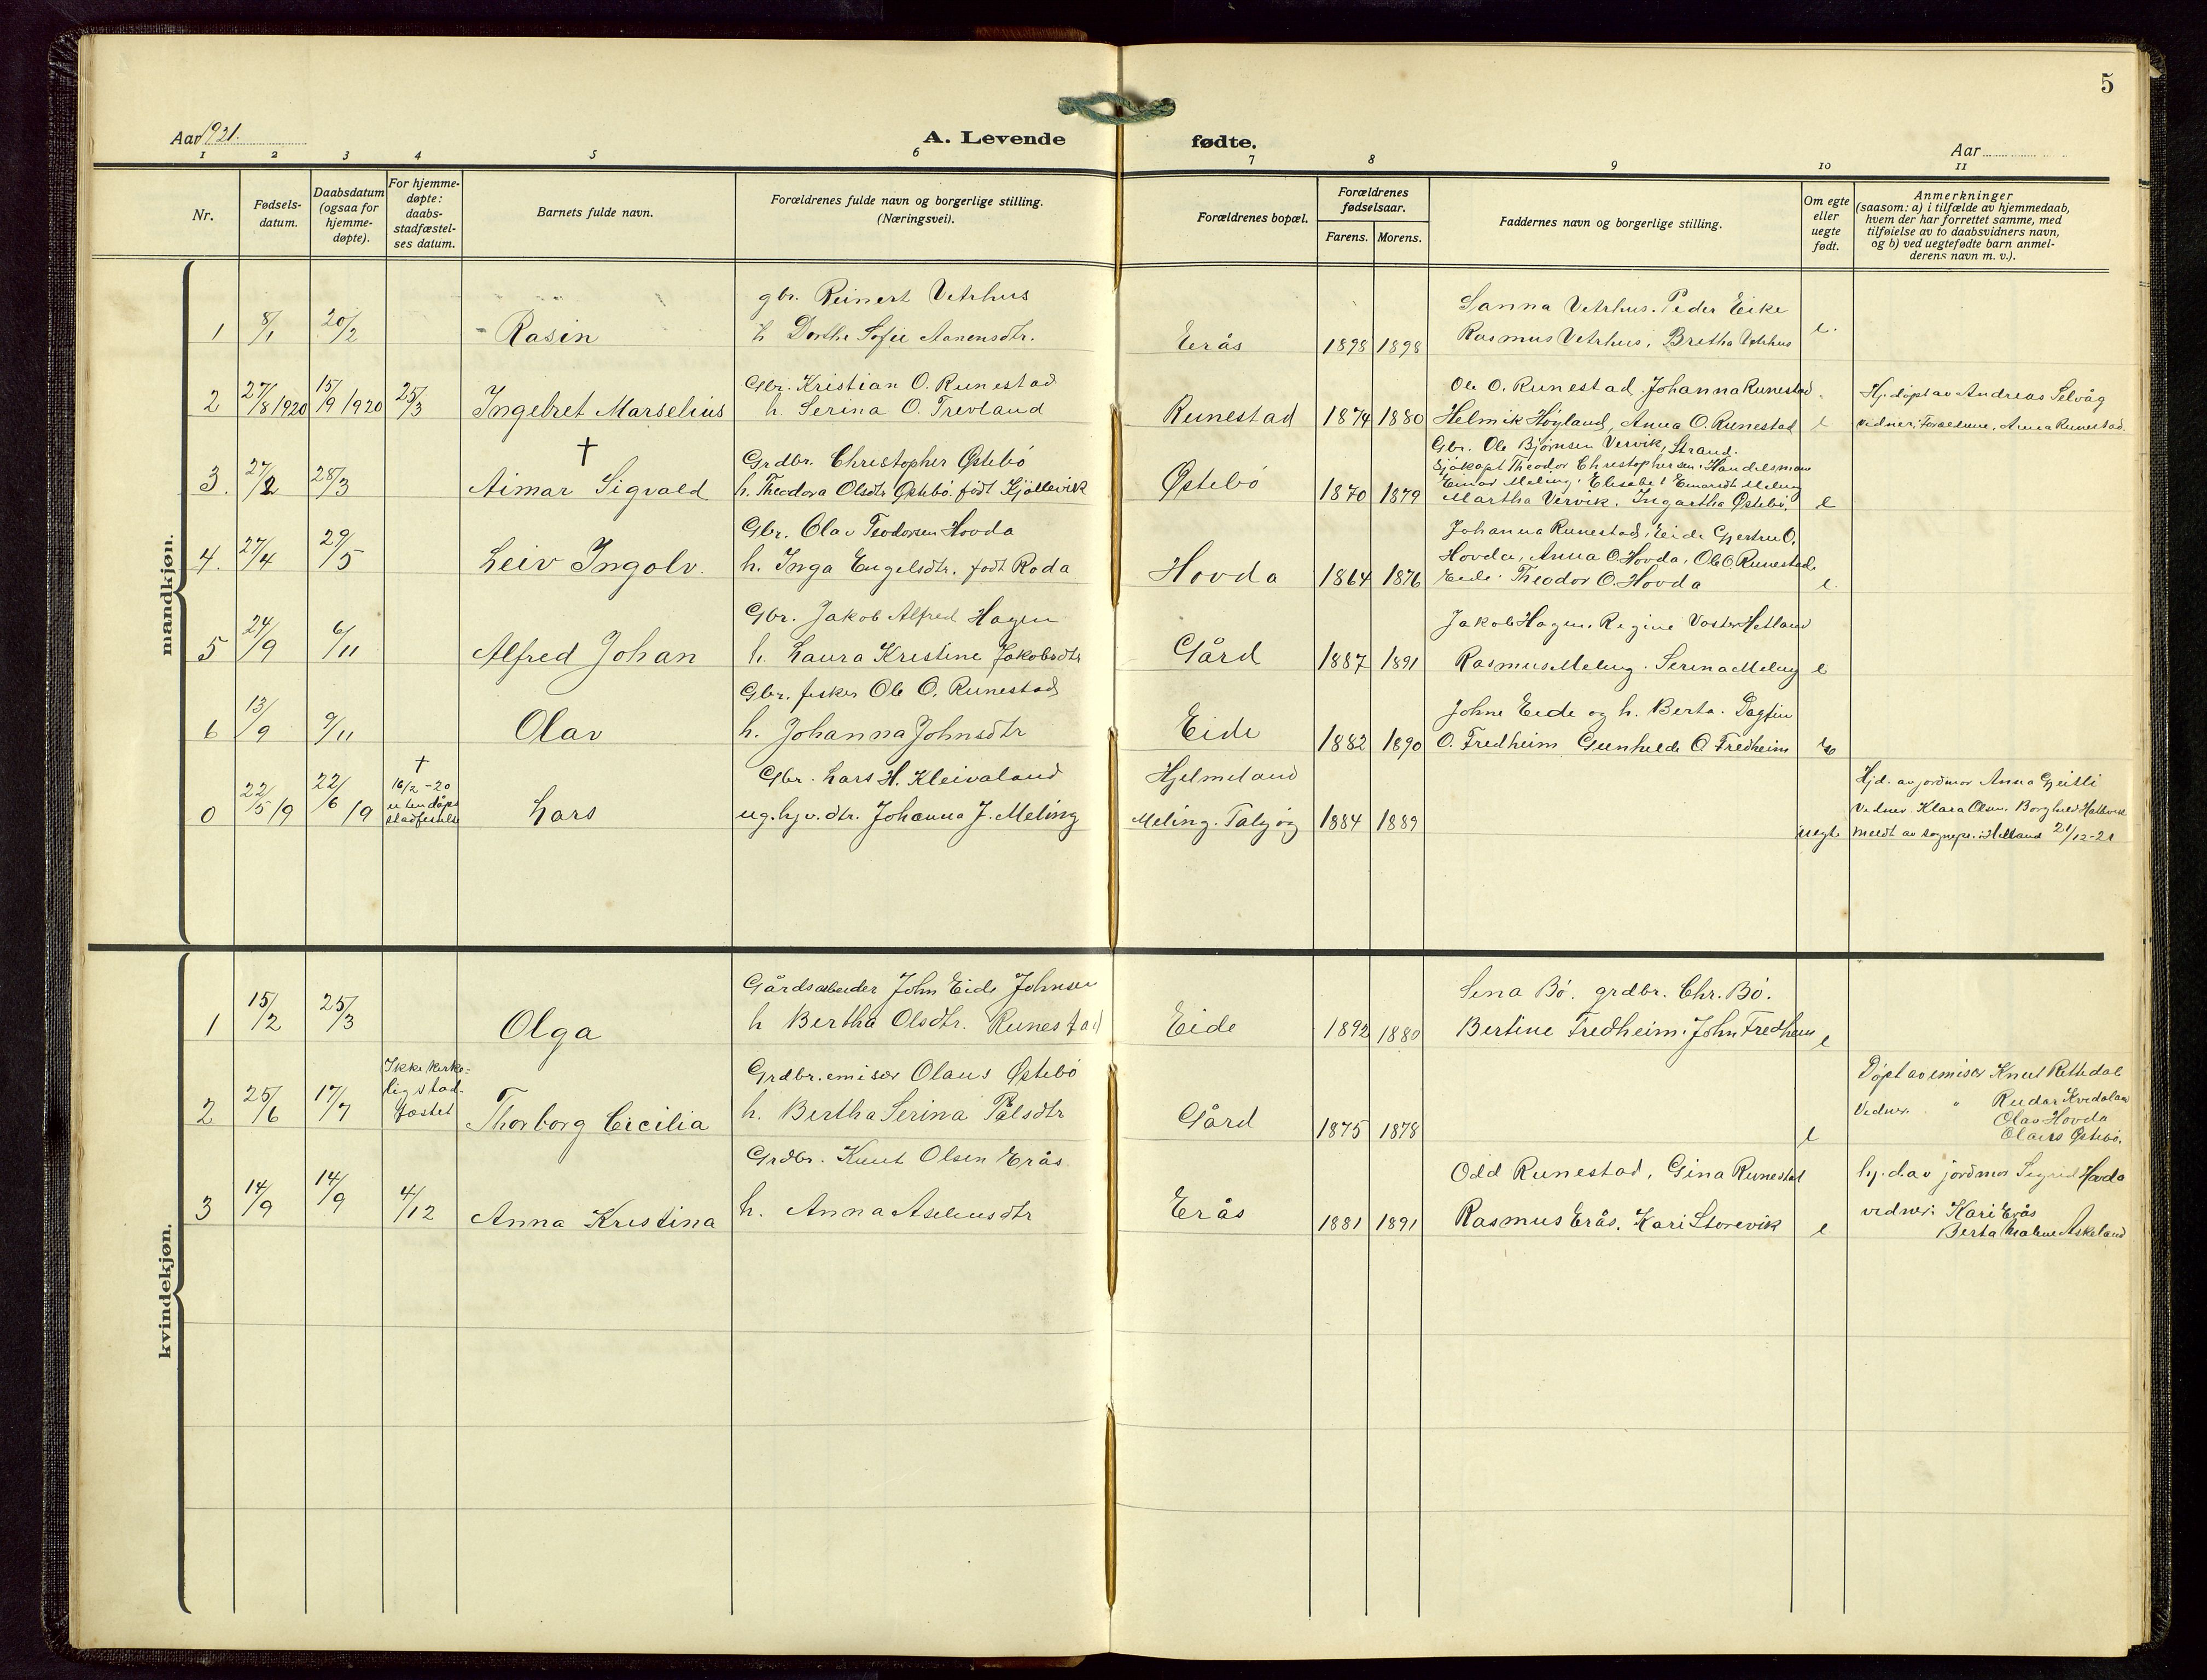 5
Aar 1921.
A. Levende fødte.
Aar
1 2 3 4 5 6 7 8 9 10 11
Nr.
Fødsels-
datum.
Daabsdatum
(ogsaa for
hjemme-
døpte).
For hjemme-
døpte:
daabs-
stadfæstel-
ses datum.
Barnets fulde navn.
Forældrenes fulde navn og borgerlige stilling.
(Næringsvei).
Forældrenes bopæl.
Forældrenes
fødselsaar.
Farens. Morens.
Faddernes navn og borgerlige stilling.
Om egte
eller
uegte
født.
Anmerkninger
(saasom: a) i tilfælde av hjemmedaab,
hvem der har forrettet samme, med
tilføielse av to daabsvidners navn,
og b) ved uegtefødte barn anmel-
derens navn m. v.).
mandkjøn.
gbr. Reinert Vetrhus Sanna Vetrhus. Peder Eike
1 8/1 20/2 Rasin h Dorthe Sofie Aanensdtr. Erås 1898 1898 Rasmus Vetrhus, Bretha Vetrhus e.
Gbr. Kristian O. Runestad Ole O. Runestad, Johanna Runestad. Hj. døpt av Andreas Selvåg
2 27/8 1920 15/9 1920 25/3 Ingebret Marselius h. Serina O. Trevland Runestad 1874 1880 Helmik Høyland, Anna O. Runestad e vidner: Forældrene, Anna Runestad.
†
Grdbr. Christopher Østebö Gbr. Ole Björnsen Vervik, Strand.
Sjökapt Theodor Christophersen. Handelsmann
Einar Meling. Elisabet Einarsdt Meling
3. 27/2 28/3 Aimar Sigvald h. Theodora Olsdtr Østebö. födt Kjöllevik Østebö 1870 1879 Martha Vervik. Ingartha Østebö. e
Gbr. Olav Teodorsen Hovda Johanna Runestad, Eide Gjertru O.
Hovda, Anna O. Hovda, Ole O. Runestad,
4. 27/4 29/5 Leiv Ingolv. h. Inga Engelsdtr. født Roda Hovda 1864 1876 Eide. Theodor O. Hovda e.
Gbr. Jakob Alfred Hagen Jakob Hagen. Regine Voster Hetland
5 24/9 6/11 Alfred Johan h. Laura Kristine Jakobsdtr Gård 1887 1891 Rasmus Meling. Serina Meling e
Gbr. fisker Ole O. Runestad Johne Eide og h. Berta. Dagfin
6 13/9 9/11 Olav h. Johanna Johnsdtr Eide 1882 1890 O. Fredheim Gunhilde O. Fredheim
†
16/2 - 20
uten dåps
stadfestelse
Gbr. Lars H. Kleivaland Hjelmeland Hjd. av jordmor Anna
0 22/5 19 22/6 19 Lars ug. hjv. dtr. Johanna J. Meling Meling. Talgøy 1884 1889 uegt.
Vidner. Klara Olsen. Borghild
meldt av sognepr. i Hetland 21/12-21
kvindekjøn.
Gårdsarbeider John Eide Johnsen Sina Bö. grdbr. Chr. Bö.
1 15/2 25/3 Olga h Bertha Olsdtr. Runestad Eide 1892 1880 Bertine Fredheim. John Fredheim e
Ikke kirke-
lig stad-
fæstet
Grdbr. emisær Olaus Østebö Døpt av emisær Knut Rettedal
2 25/6 17/7 Thorborg Cicilia h. Bertha Serina Pålsdtr Gård 1875 1878 e
Vidner. " Reidar Kvedaland
Olav Hovda
Olaus Østebö.
Grdbr. Knut Olsen Erås Odd Runestad, Gina Runestad hj. d. av jordmor Sigrid Hovda
3 14/9 14/9 4/12 Anna Kristina h. Anna Aseliusdtr Erås 1881 1891 Rasmus Erås. Kari Storevik e
vidner: Kari Erås
Berta Malene Askeland